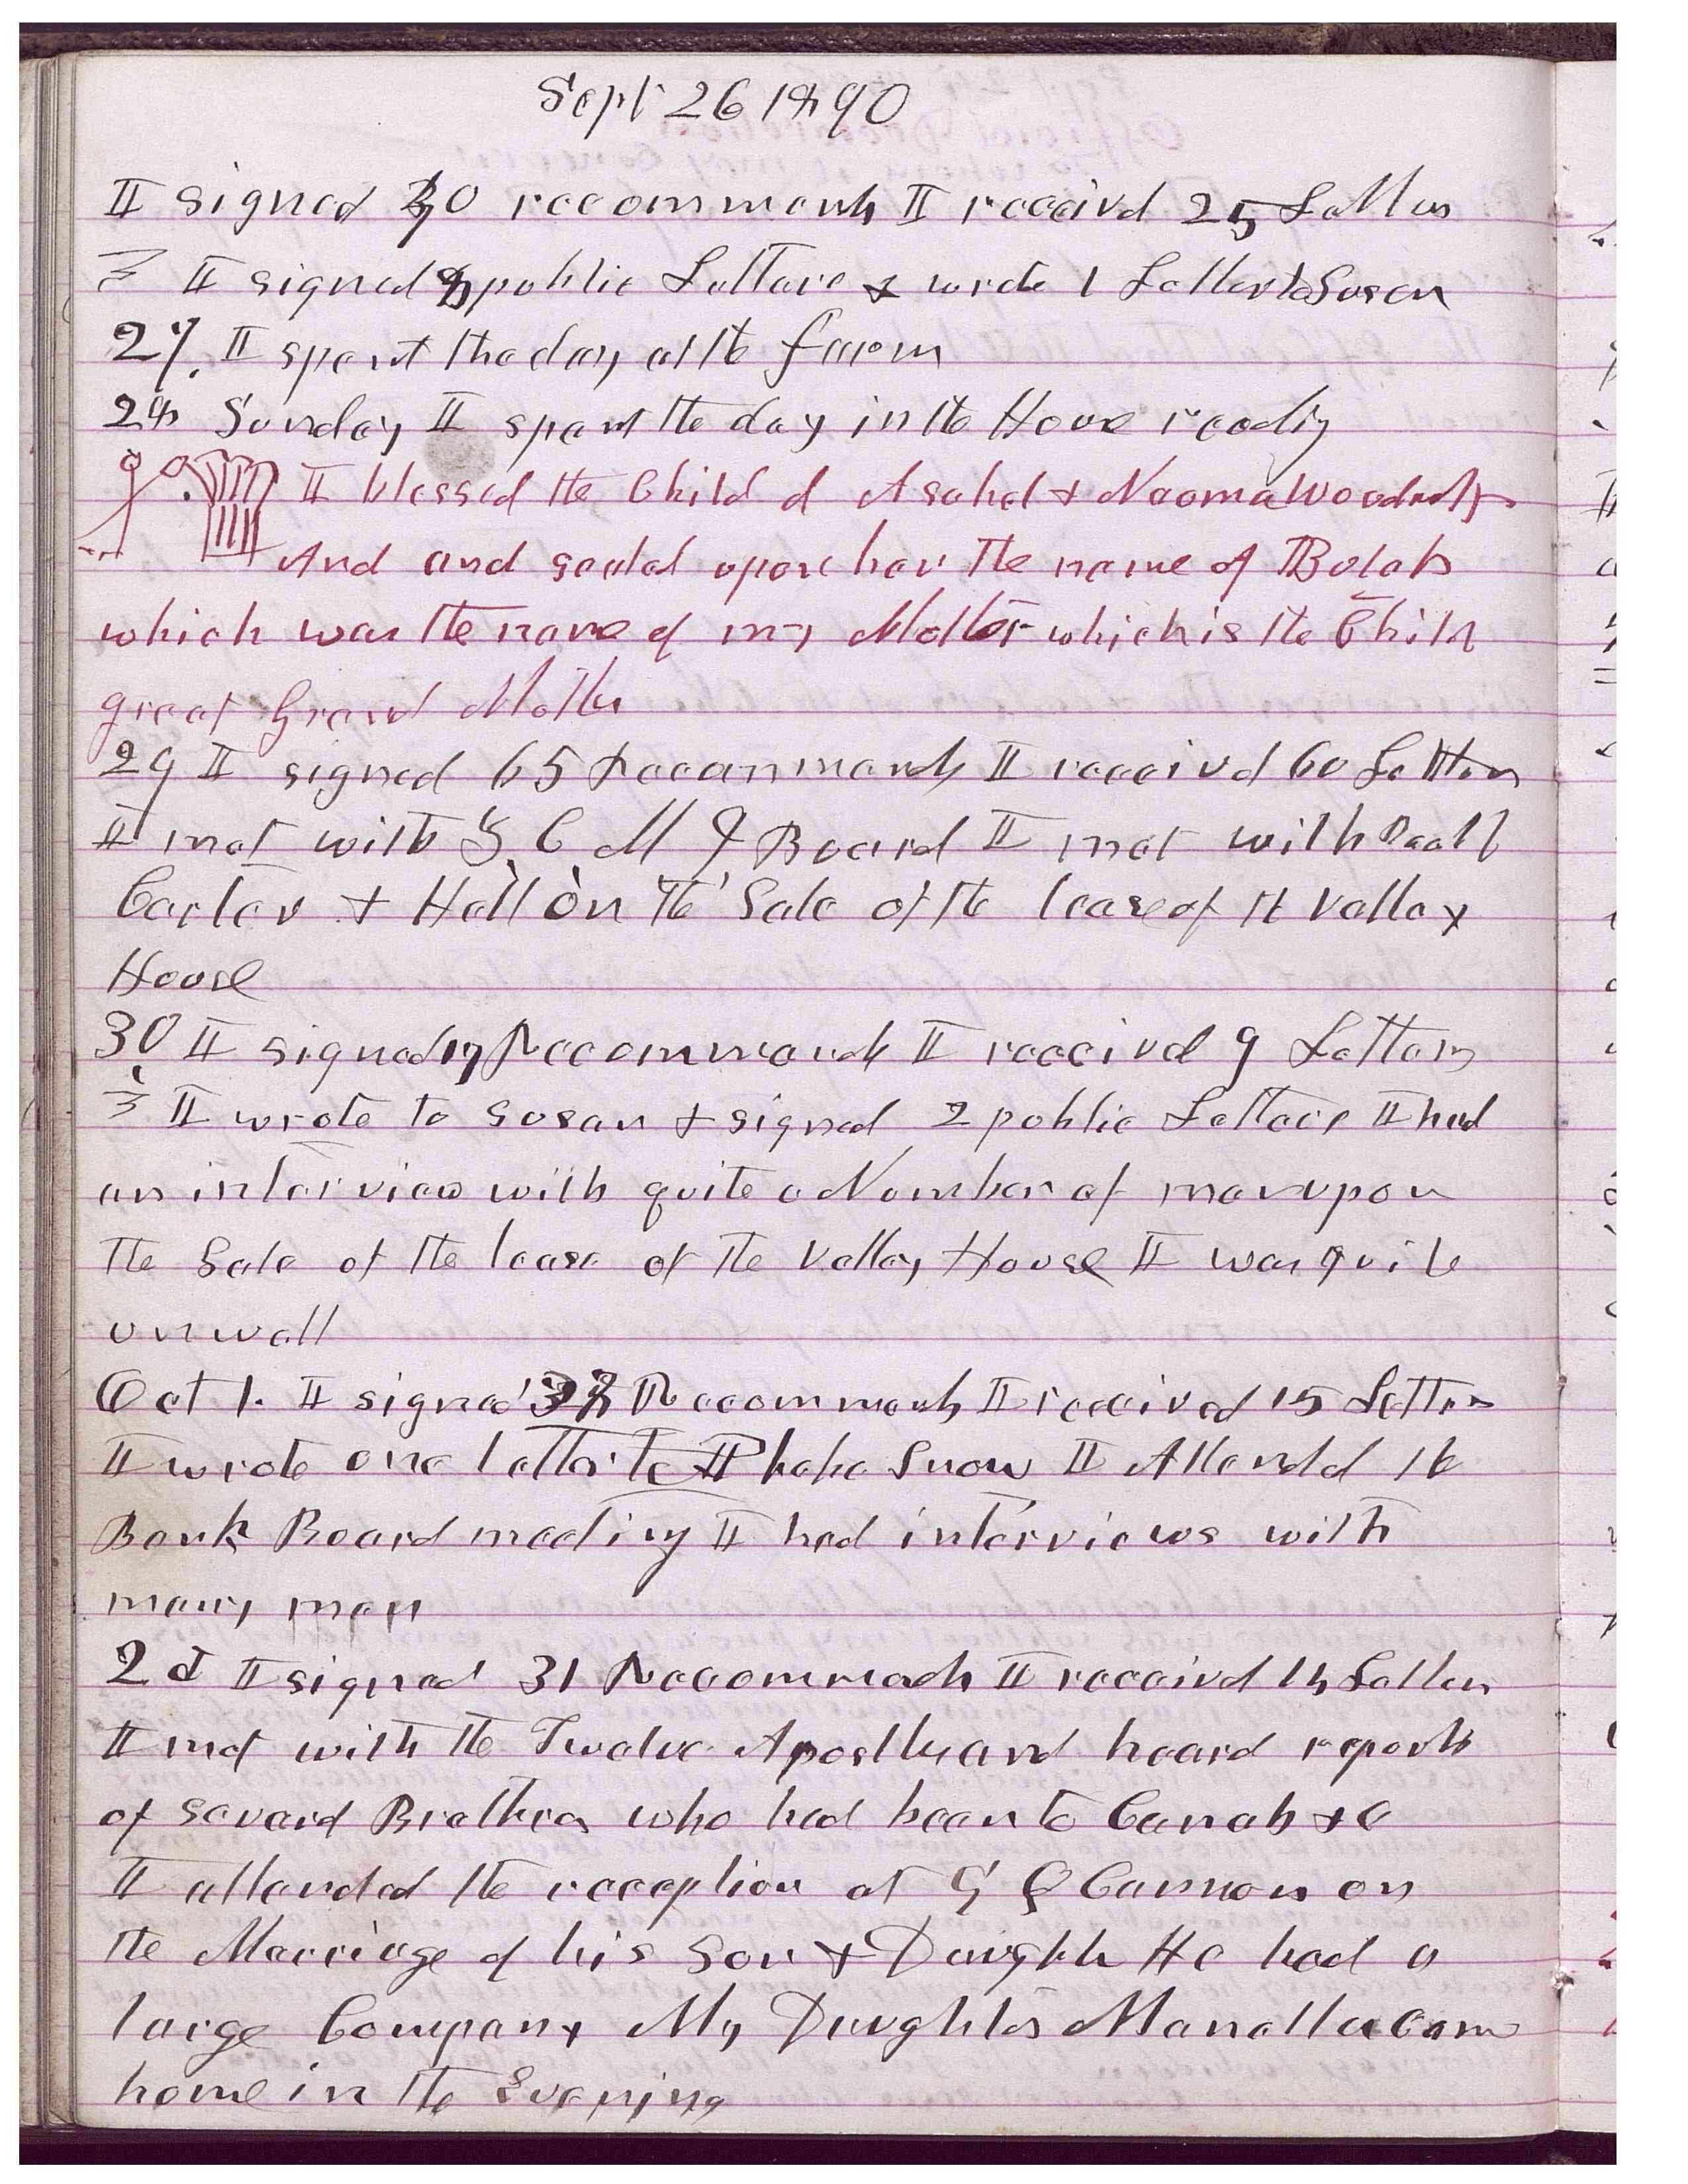 Sept 26 1890
I signed 30 recommends I receivd 25 Letters
I signed public Letters & wrote 1 Letter to Susan
27. I spent the day at the farm
28 Sunday I spent the day in the House reading
I blessed the Child of Asahel & Naoma Woodruff
And and sealed upon her the name of Bulah
which was the name of my Mother which is the Child
great Grand Mother
29 I signed 65 Recommends I receivd 60 Letters
I met with Z C M I Board I met with
Carter & Hall on the Sale of the lease of th Valley
House
30 I signed 17 Recommends I receivd 9 Letters
I wrote to Susan & signed 2 public Letters I had
an interview with quite a Number of men upon
the Sale of the lease of the Valley House I was quite
unwell
Oct 1. I signed Recommends I received 15 Letters
I wrote one letter to Phebe Snow I Attended the
Bank Board meeting I had interviews with
many men
2d I signed 31 Recommends I receivd Letters
I met with the Twelve Apostles and heard reports
of severl Brethren who had been to Canab &c
I attended the reception at G Q Cannon on
the Marriage of his Son & Daughtr He had a
large Company My Daughters Manella Came
home in the Evening